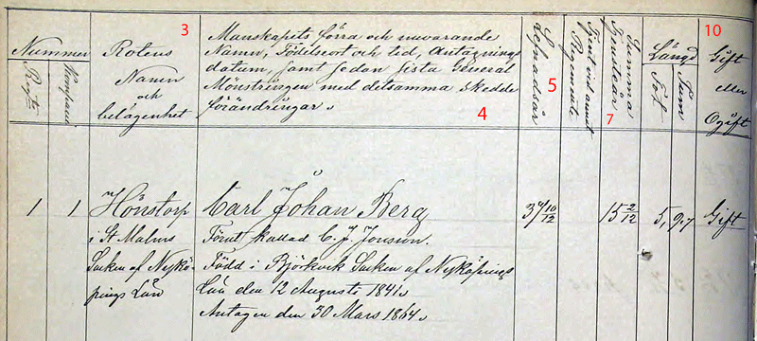 3
10
5
7
4
Nummer
Regts
Kompani
Rotens
Namn
och
belägenhet
Manskapets förra och nuvarande
Namn, Födelseort och tid, Antagnings
datum, samt sedan sista General
Mönstringen med detsamma skedde
förändringar.
Lefnadsår
Tjent vid annat
Regemente
Summa
Tjensteår
Längd
Fot
Tum
Gift
eller
Ogift
1 1 Hönstorp Carl Johan Berg 15 2/12 5, 9,7 Gift
i St Malms Förut kallad C. J. Jonsson.
Socken af Nyköpings Län Född i Björkvik Socken af Nyköpings
Län den 12 Augusti 1841.
Antagen den 30 Mars 1864.